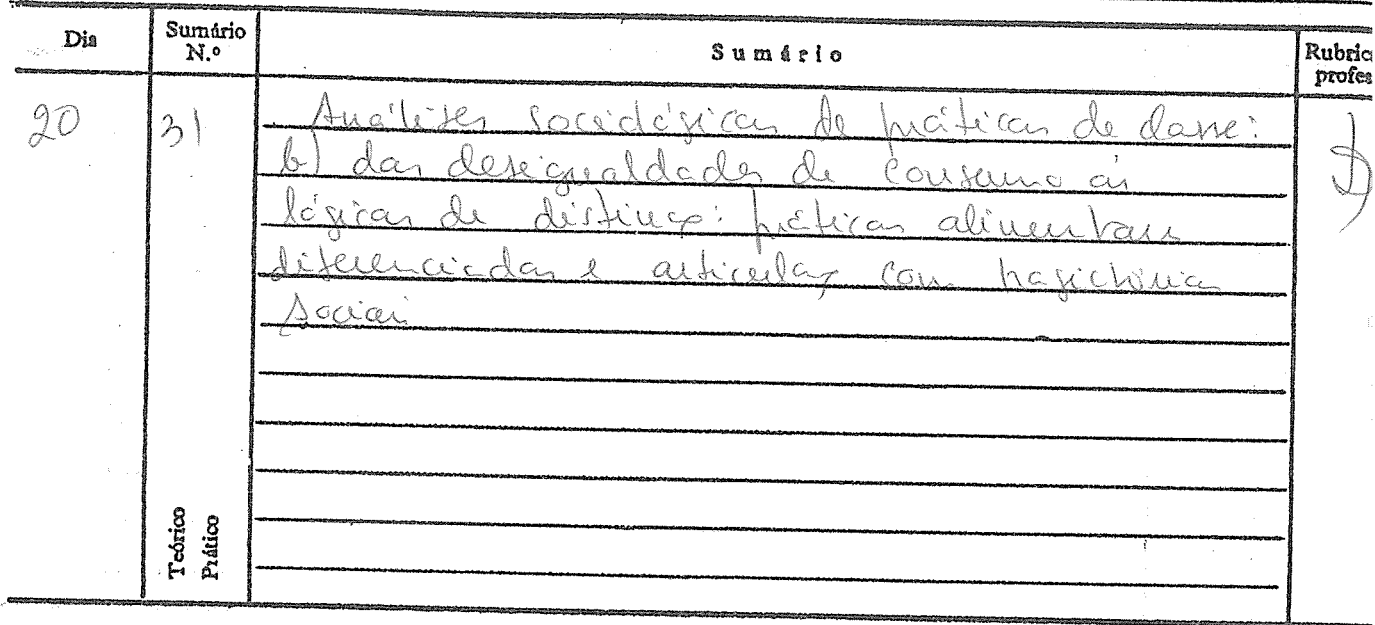 Dia Sumário N.º Sumário Rubric profes
20 31 Análises sociológicas de práticas de classe:
b) das desigualdades de consumo às
lógicas de distinç: práticas alimentares
diferenciadas e articulaç com
sociais
Teórico
Prático